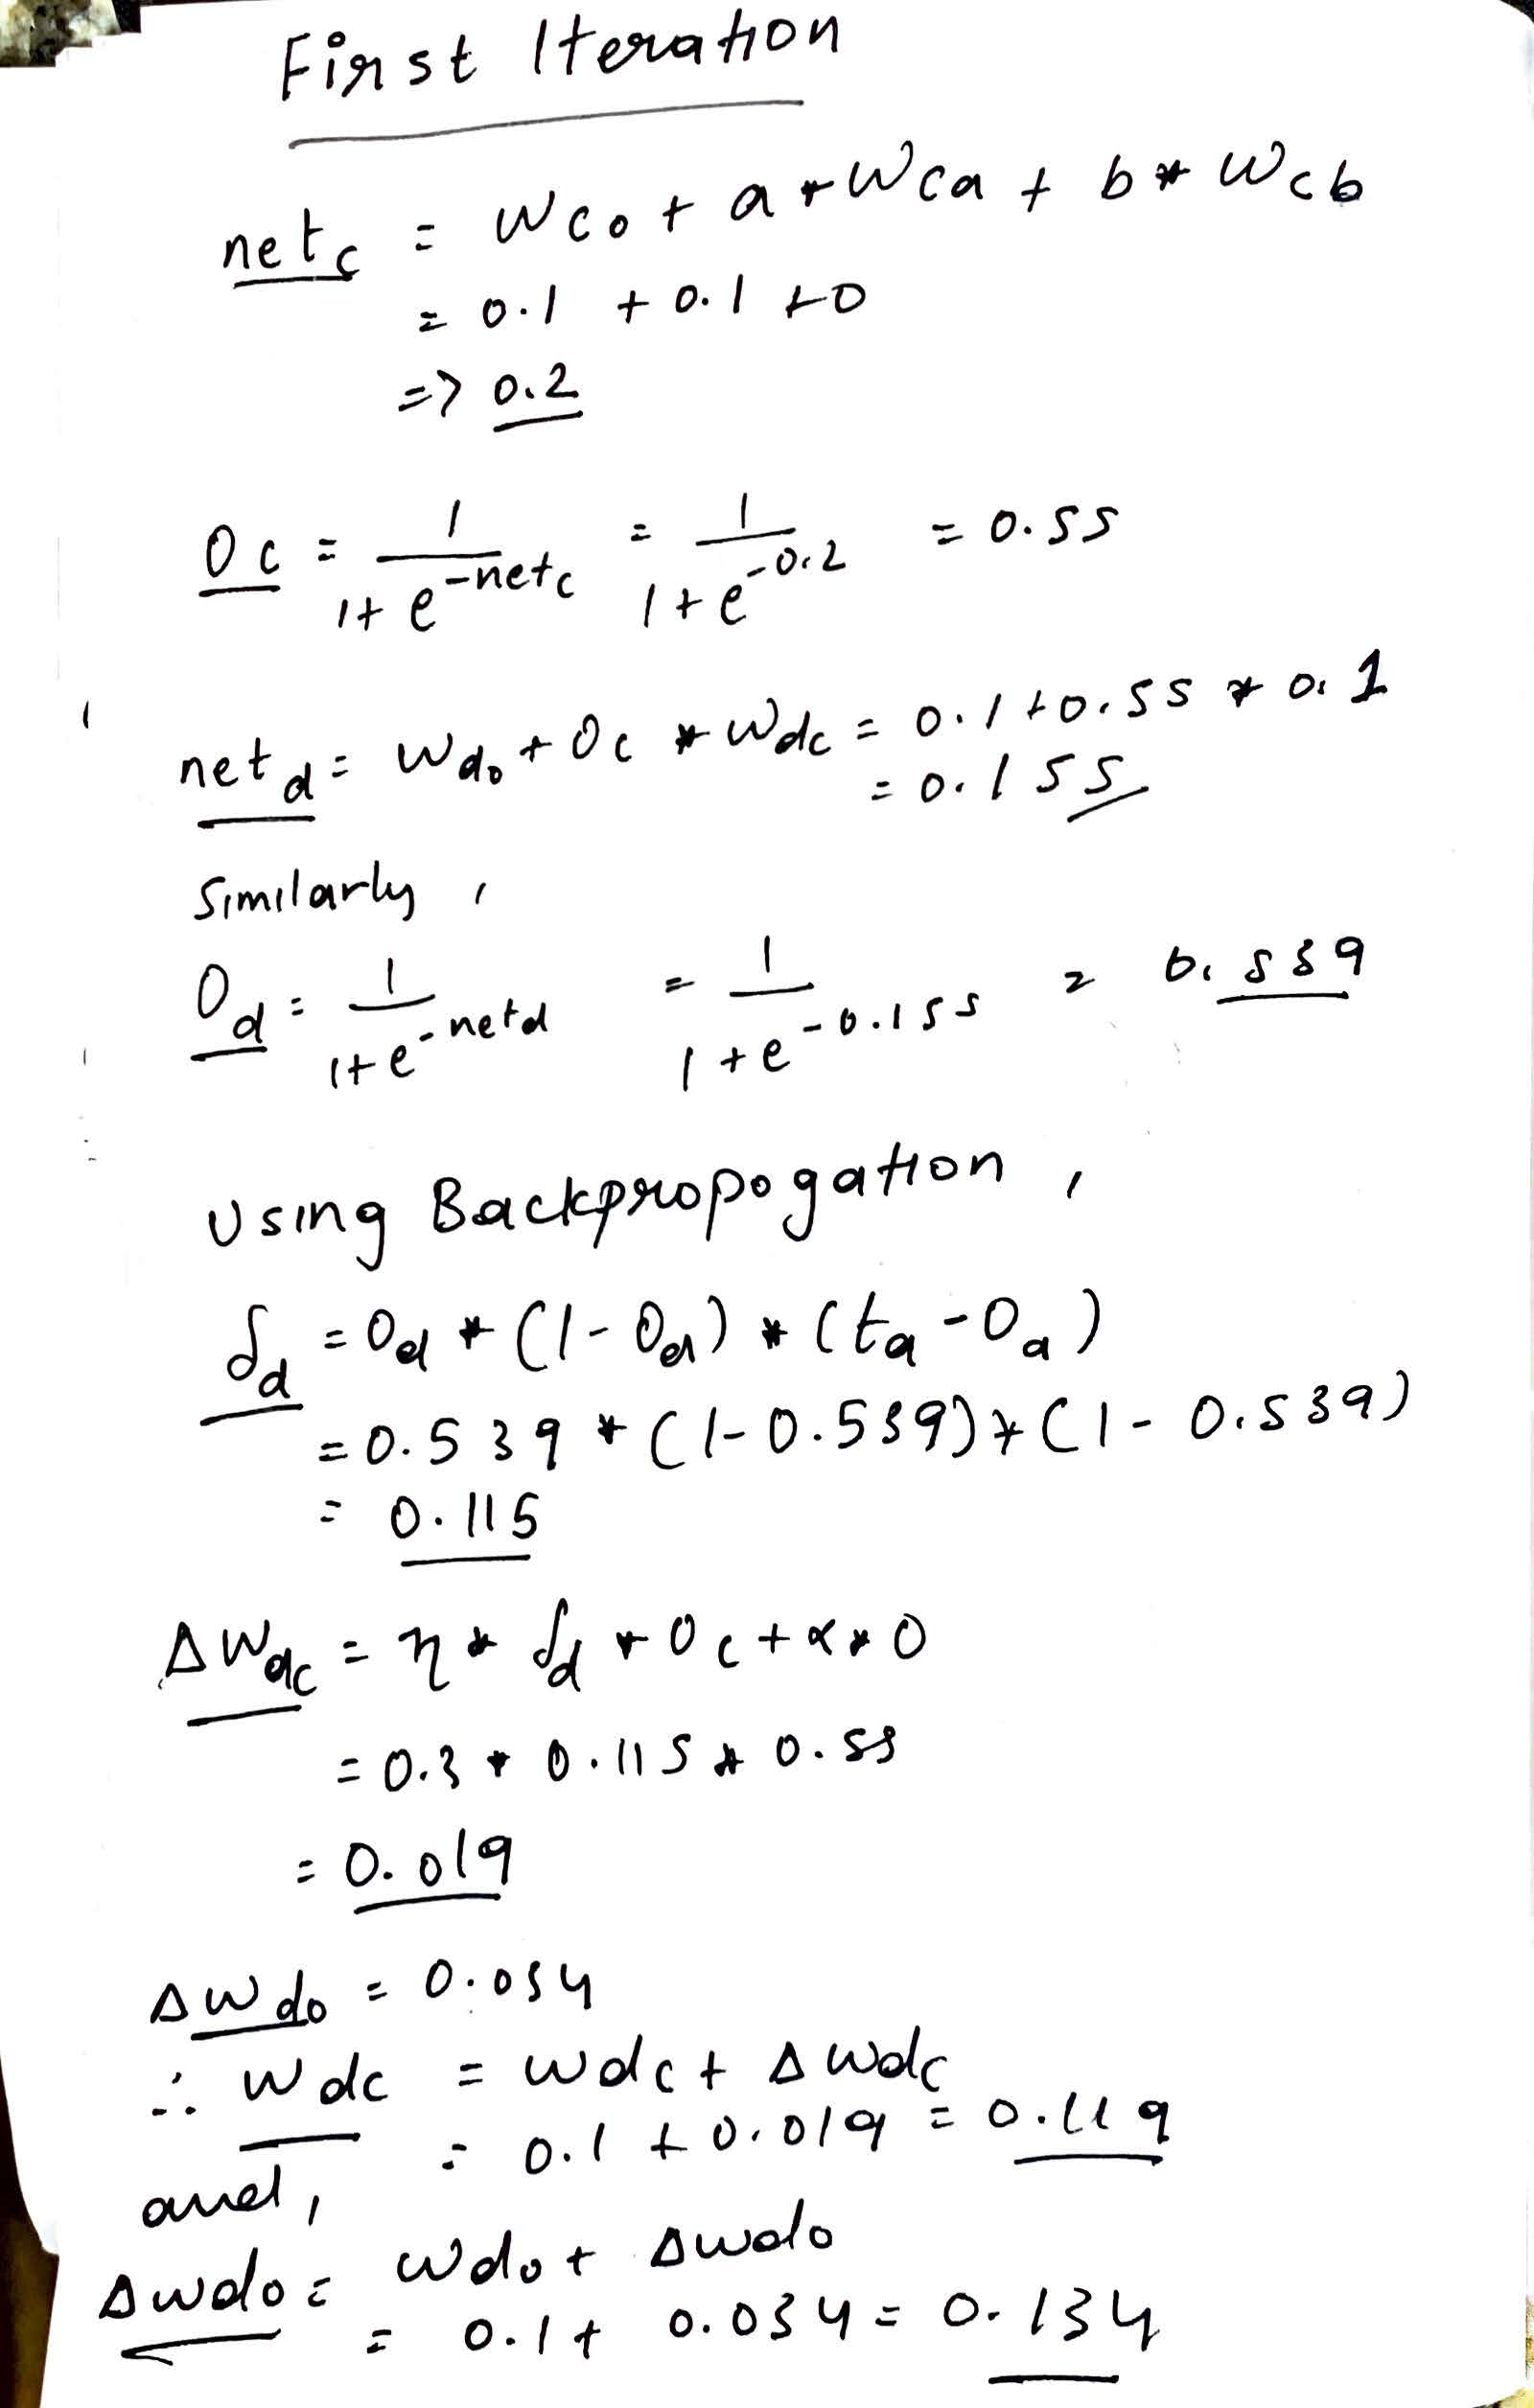 First Iteration
netc = Wco + a * Wca + b * Wcb
= 0.1 + 0.1 + 0
=> 0.2
Oc = 1/(1+e^-netc) = 1/(1+e^-0.2) = 0.55
netd = Wdo + Oc * Wdc = 0.1 + 0.55 * 0.1
= 0.155
Similarly,
Od = 1/(1+e^-netd) = 1/(1+e^-0.155) = 0.539
Using Backpropogation,
δd = Od * (1-Od) * (td - Od)
= 0.539 * (1-0.539) * (1-0.539)
= 0.115
ΔWdc = η * δd * Oc + α * 0
= 0.3 * 0.115 * 0.55
= 0.019
ΔWdo = 0.034
∴ Wdc = Wdc + ΔWdc
= 0.1 + 0.019 = 0.119
and,
ΔWdo = Wdo + ΔWdo
= 0.1 + 0.034 = 0.134